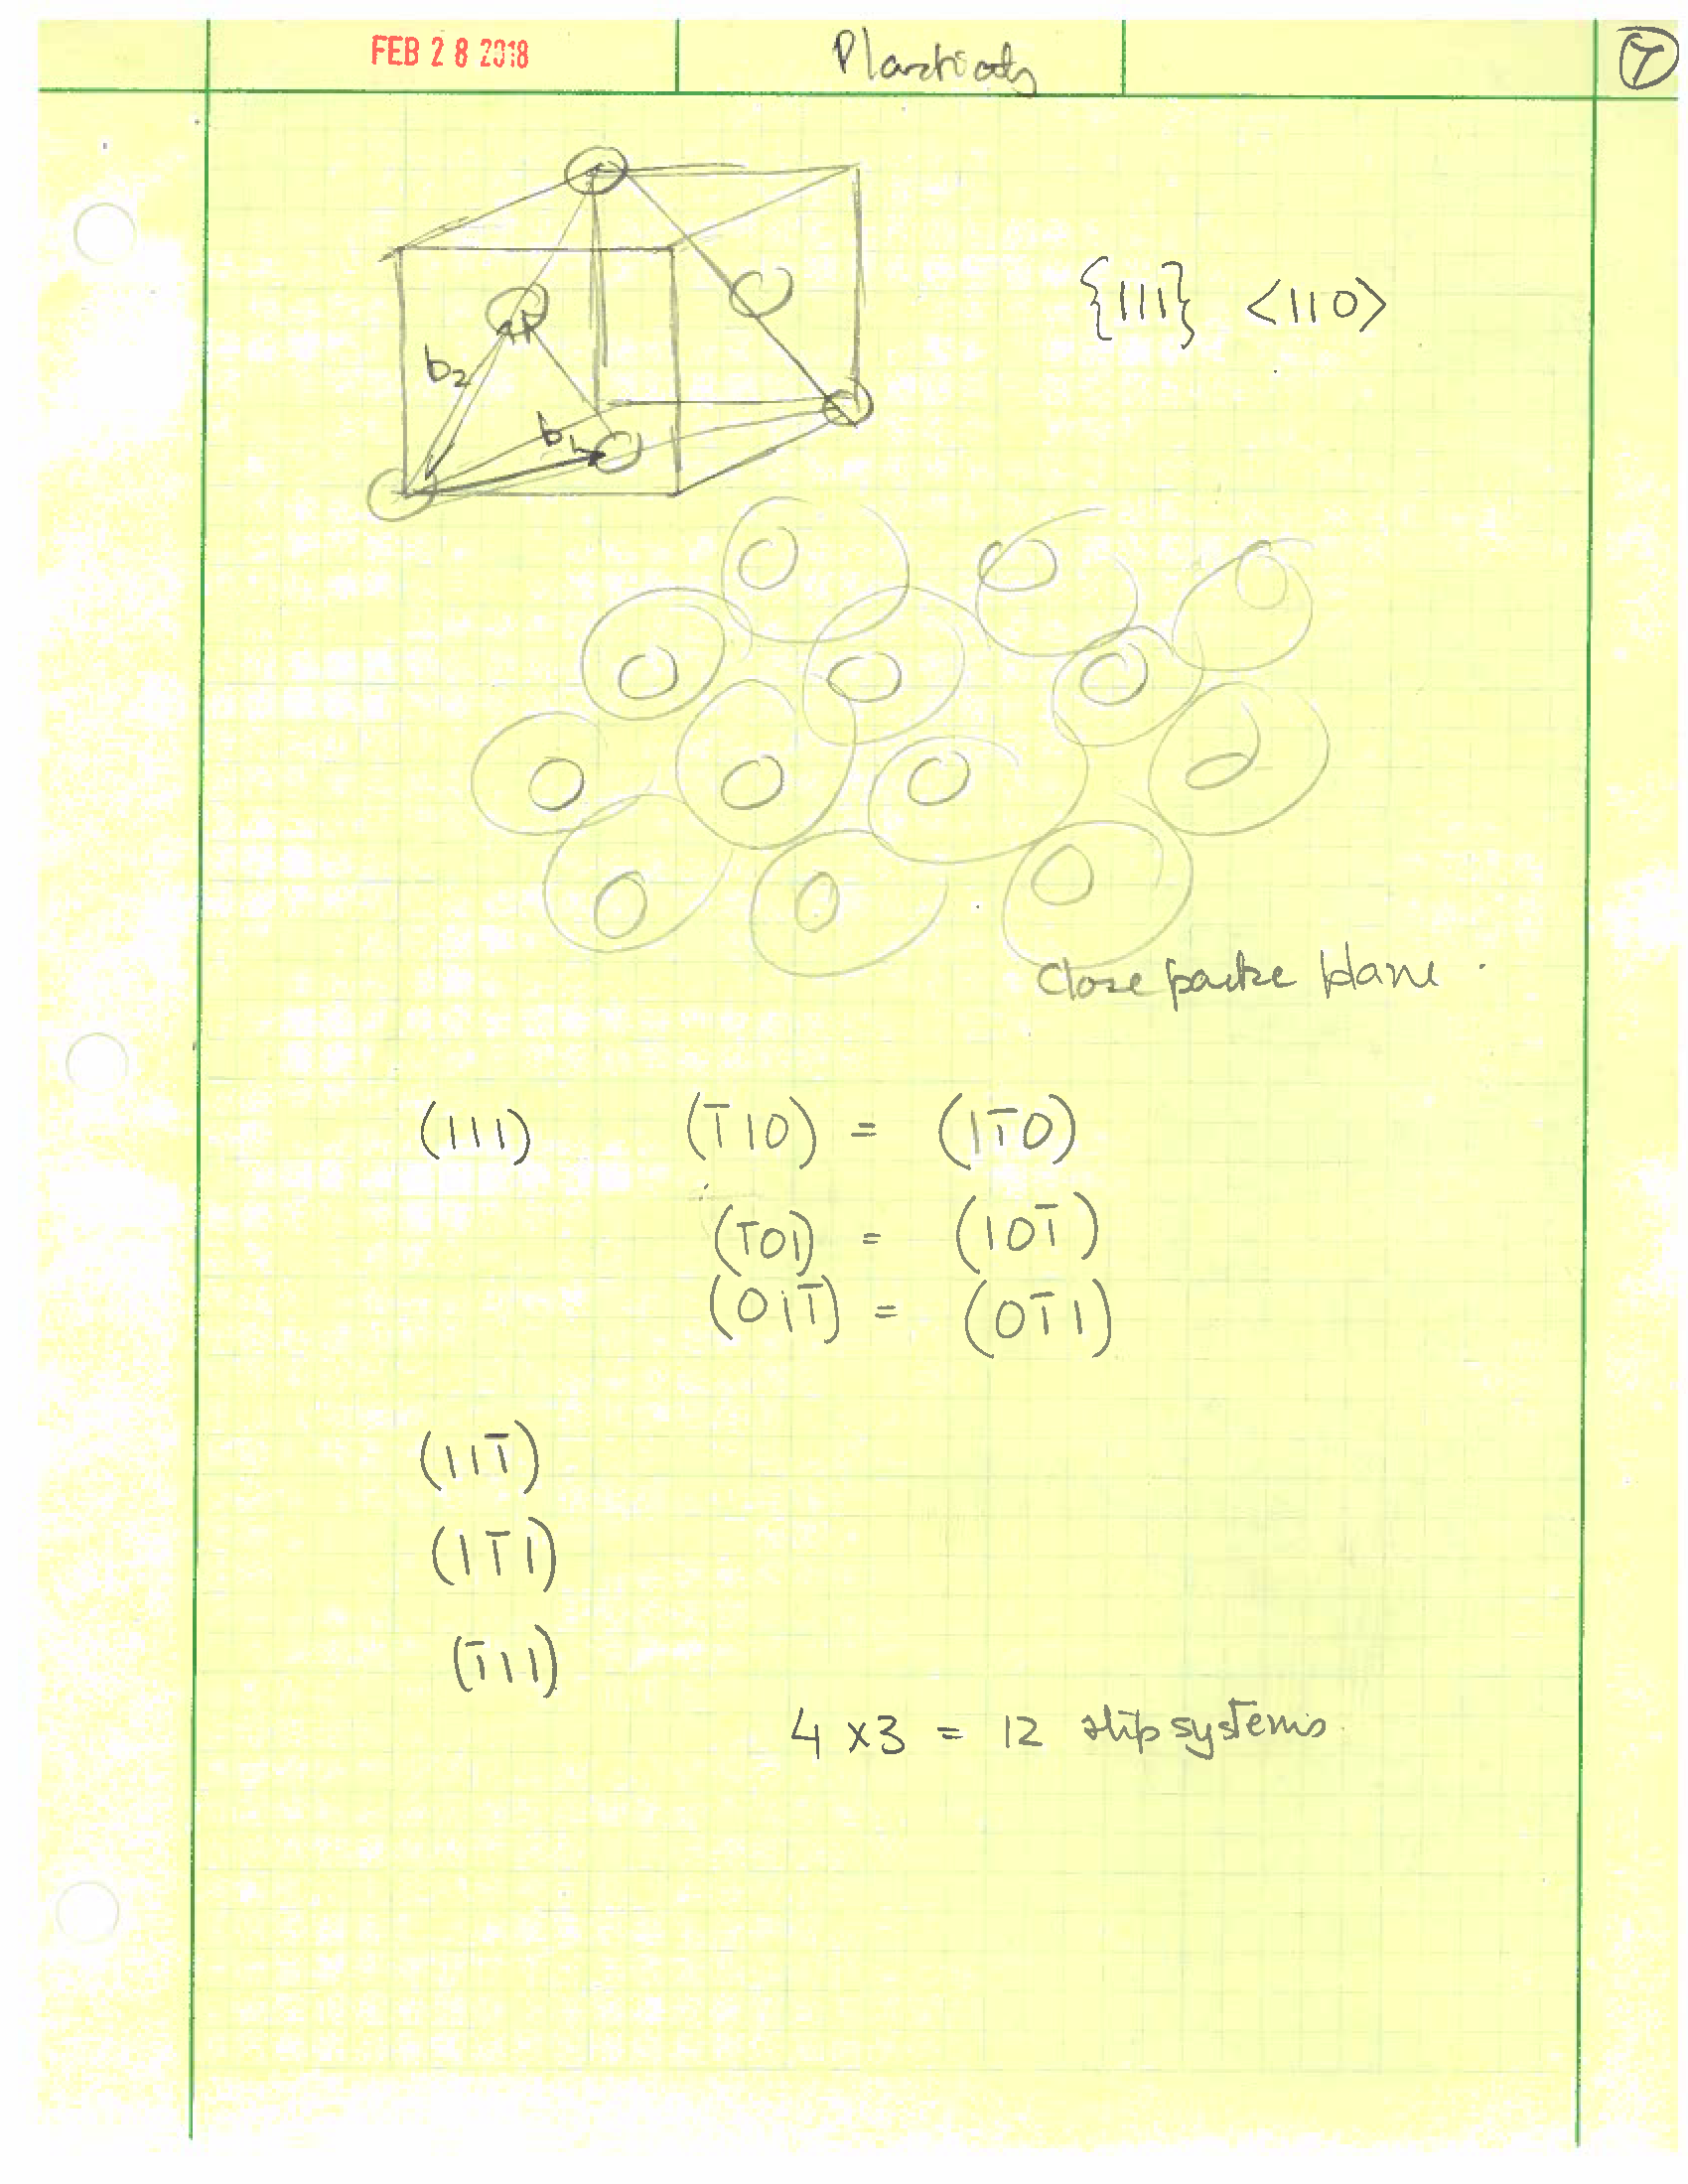 FEB 28 2018
Plasticity
7
{111} <110>
b2
b1
Close packe plane .
(111) (1̄10) = (11̄0)
(1̄01) = (101̄)
(011̄) = (01̄1)
(111̄)
(11̄1)
(1̄11)
4 x 3 = 12 slip systems.